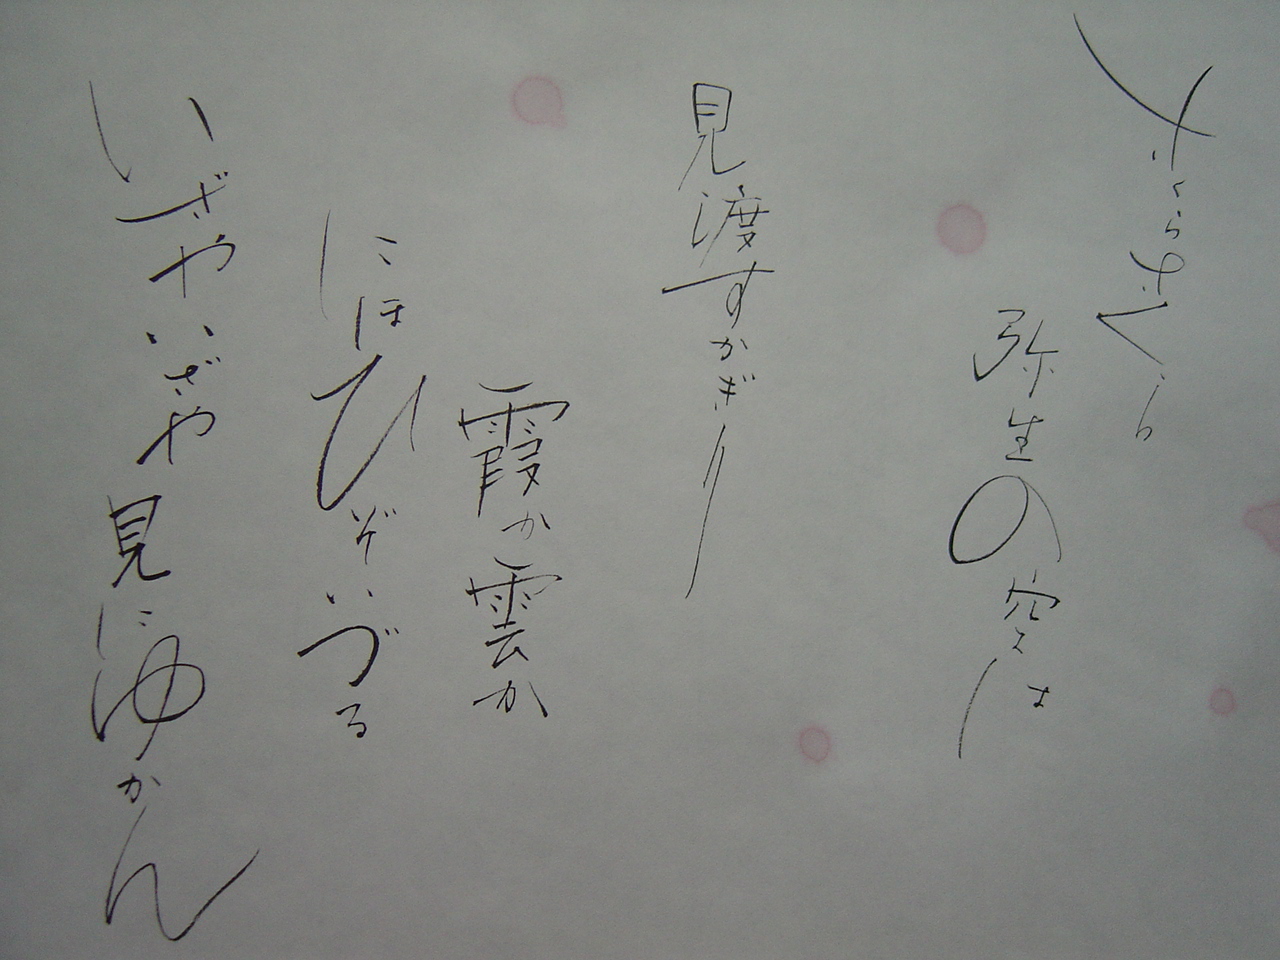 さくらさくら
弥生の空は
見渡すかぎり
霞か雲か
にほひぞいづる
いざやいざや見にゆかん